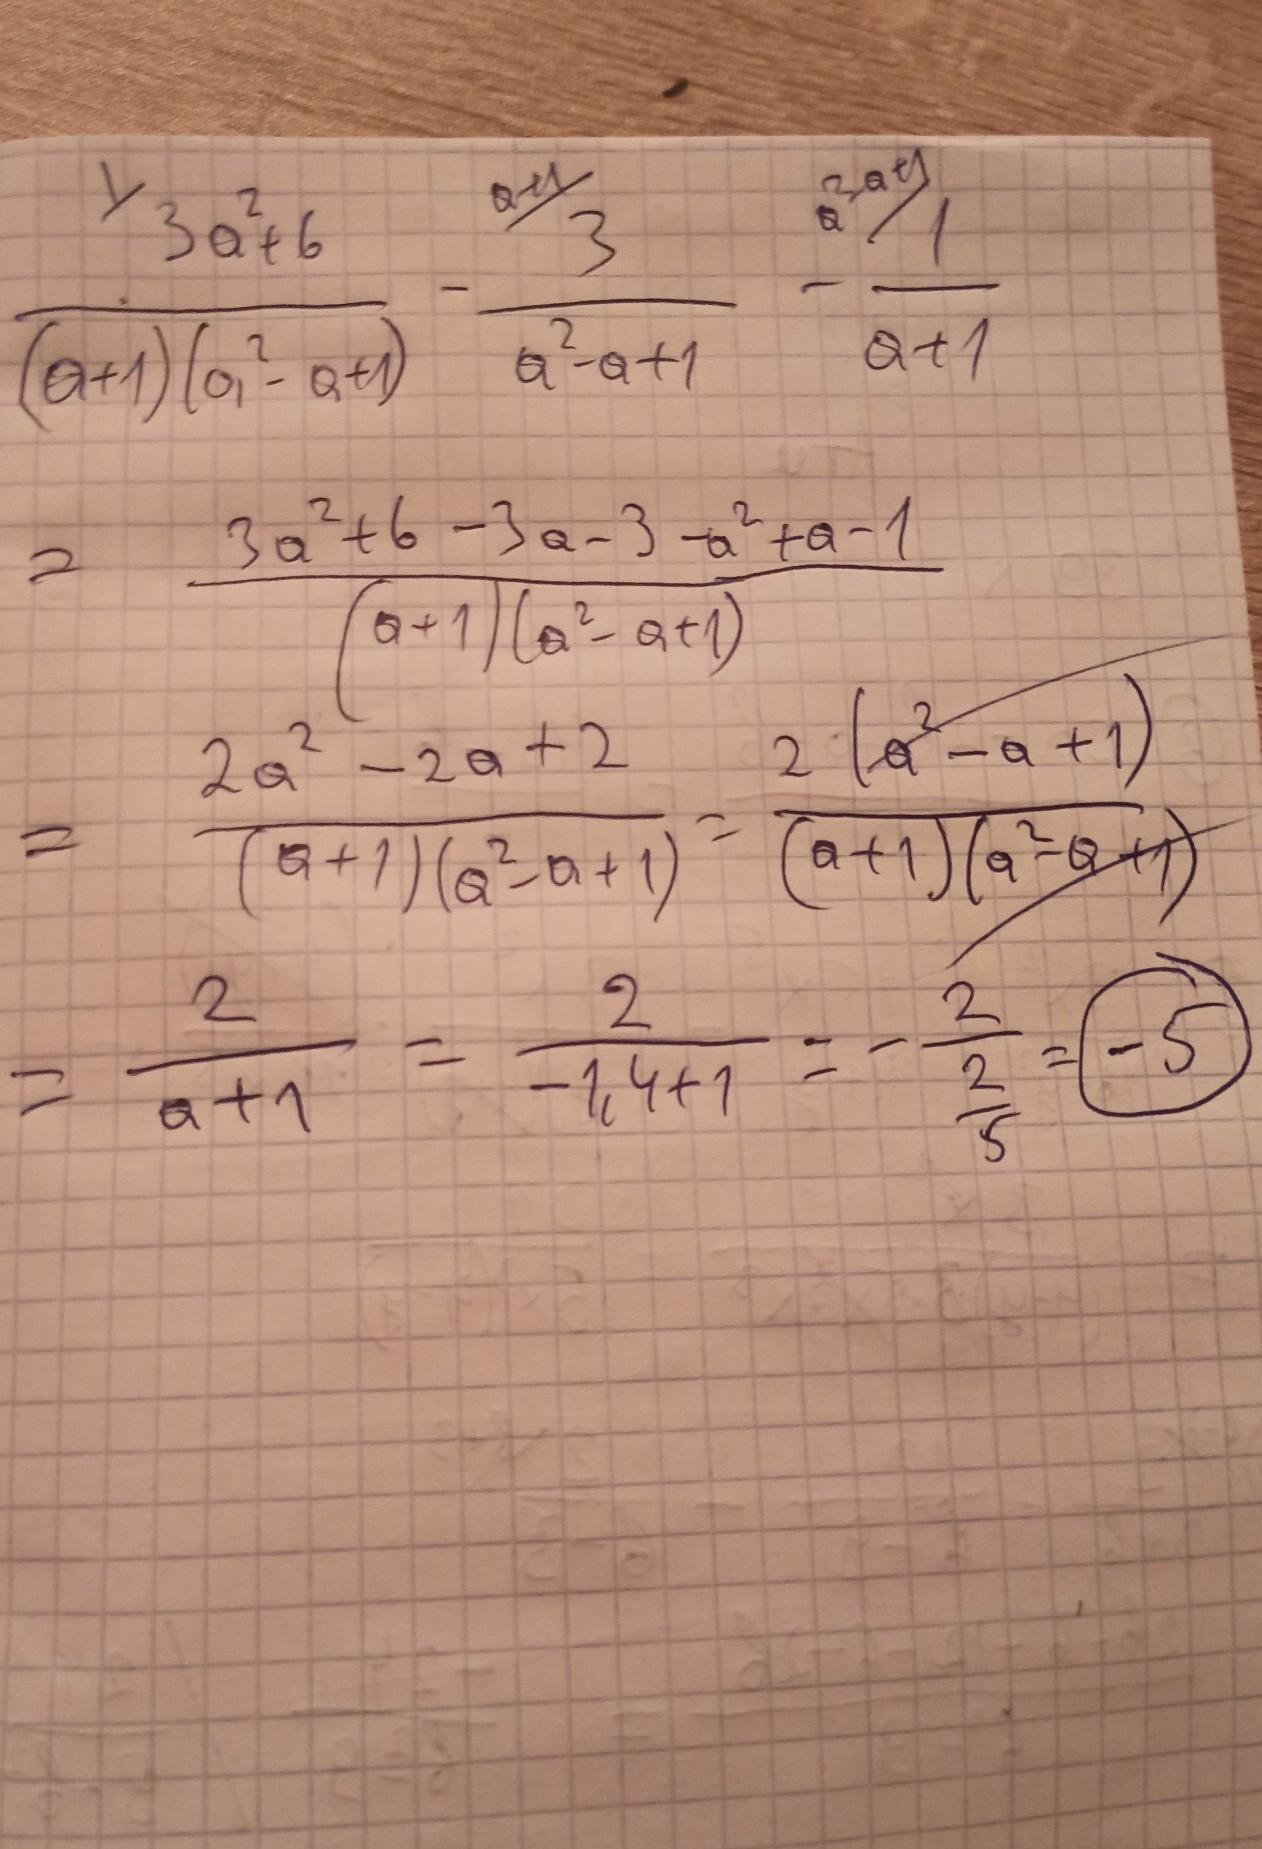 1/ (3a²+6)/((a+1)(a²-a+1)) - a+1/ 3/(a²-a+1) - a²-a+1/ 1/(a+1)
= (3a²+6-3a-3-a²+a-1)/((a+1)(a²-a+1))
= (2a²-2a+2)/((a+1)(a²-a+1)) = 2(a²-a+1)/((a+1)(a²-a+1))
= 2/(a+1) = 2/(-1,4+1) = - 2/(2/5) = -5